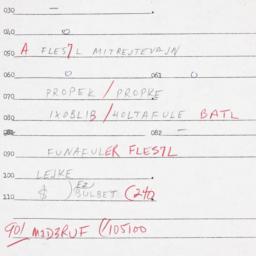 030 —
040
050 A FLES7L MITREJTEVRJN
060 061
070 PROPEK / PROPKE
080 IXOBLIB / HOLTAFULE BATL
082 —
090 FUNAFULER FLESTL
100 LEJKE
110 $ ) EZ BULBET (240
901 M2D3RUF (/105100